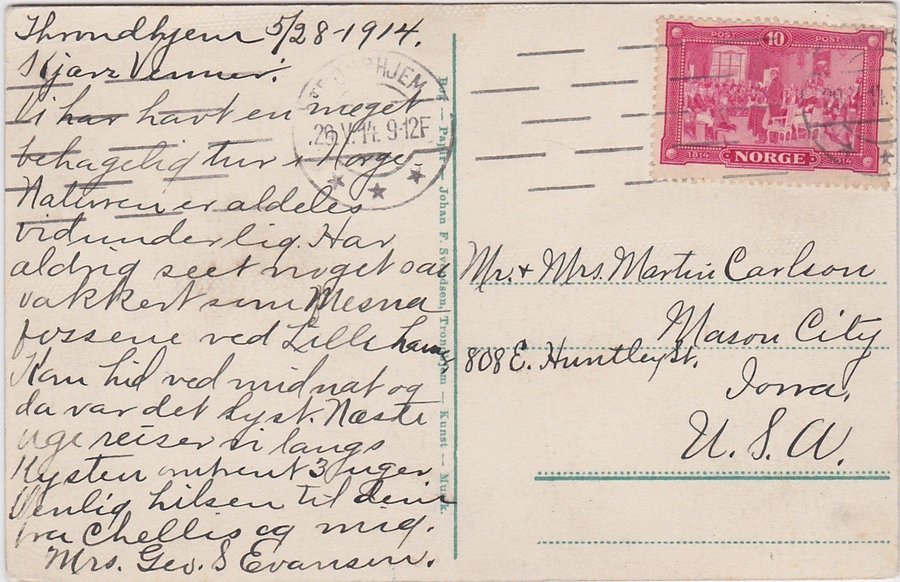 Throndhjem 5/28-1914.
Kjære Venner:
Vi har havt en meget
behagelig tur i Norge.
Naturen er aldeles
vidunderlig. Har
aldrig seet noget saa
vakkert som Mesna
fossene ved Lillehamer
Kom hid ved midnat og
da var det lyst. Næste
uge reiser vi langs
Kysten omtrent 3 uger
Venlig hilsen til dem
fra Chellis og mig.
Mrs. Geo. S Evanson.
HJEM
29.V.14. 9-12F
Papir — Johan F. Svendsen, Trondhjem — Kunst — Musik.
POST 10 POST
1814 NORGE 1914
Mr. + Mrs. Martin Carlson
Mason City
808 E. Huntley St.
Iowa,
U. S. A.